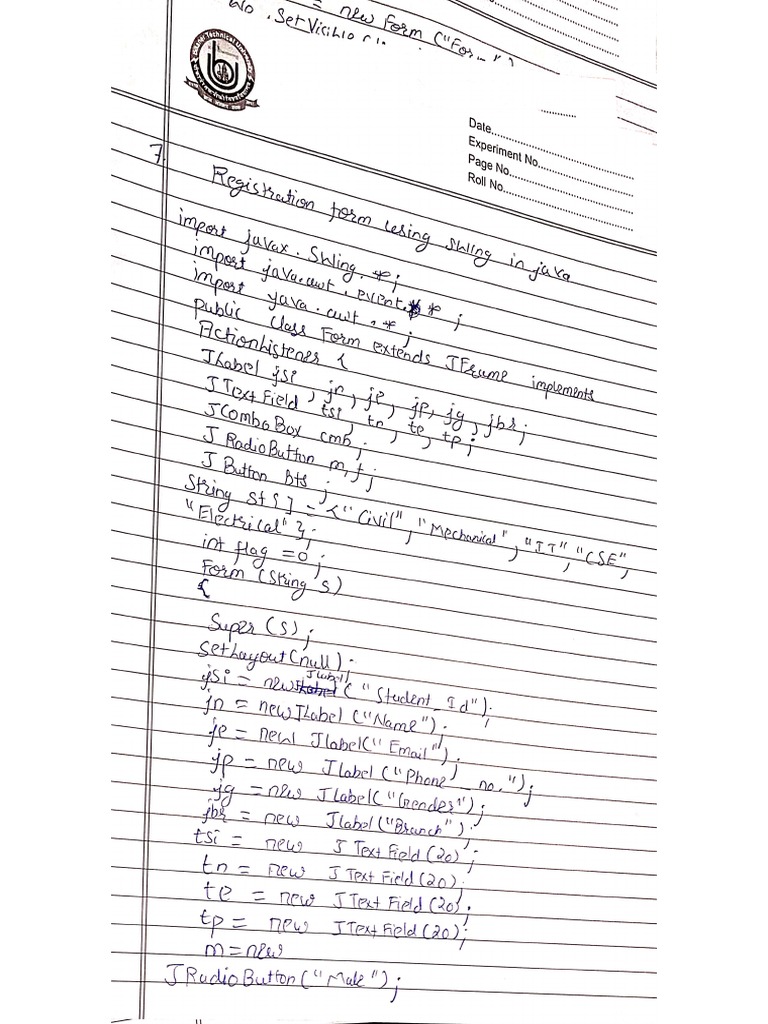 = new Form ("For
wo . Set
Date..........
Experiment No..........
Page No..........
Roll No..........
7.
Registration form using swing in java
import javax . Swing . * ;
import java.awt . event . * ;
import java . awt . * ;
public class Form extends JFrame implements
ActionListener {
JLabel jsi , jn , je , jp , jg , jbr ;
J TextField tsi , tn , te , tp ;
JComboBox cmb ;
J RadioButton m, f ;
J Button bts ;
String st [ ] = {" Civil" , "Mechanical" , "IT" , "CSE" ,
"Electrical" } ;
int flag = 0 ;
Form (String s)
{
Super (s) ;
SetLayout (null) ;
jsi = new JLabel ( " Student _ Id" ) ;
jn = new JLabel ("Name") ;
je = new JLabel (" Email") ;
jp = new JLabel ("Phone _ no. ") ;
jg = new JLabel ("Gender") ;
jbr = new JLabel ("Branch") ;
tsi = new J Text Field (20) ;
tn = new J Text Field (20) ;
te = new J Text Field (20) ;
tp = new J Text Field (20) ;
m = new
J Radio Button ( "Male" ) ;